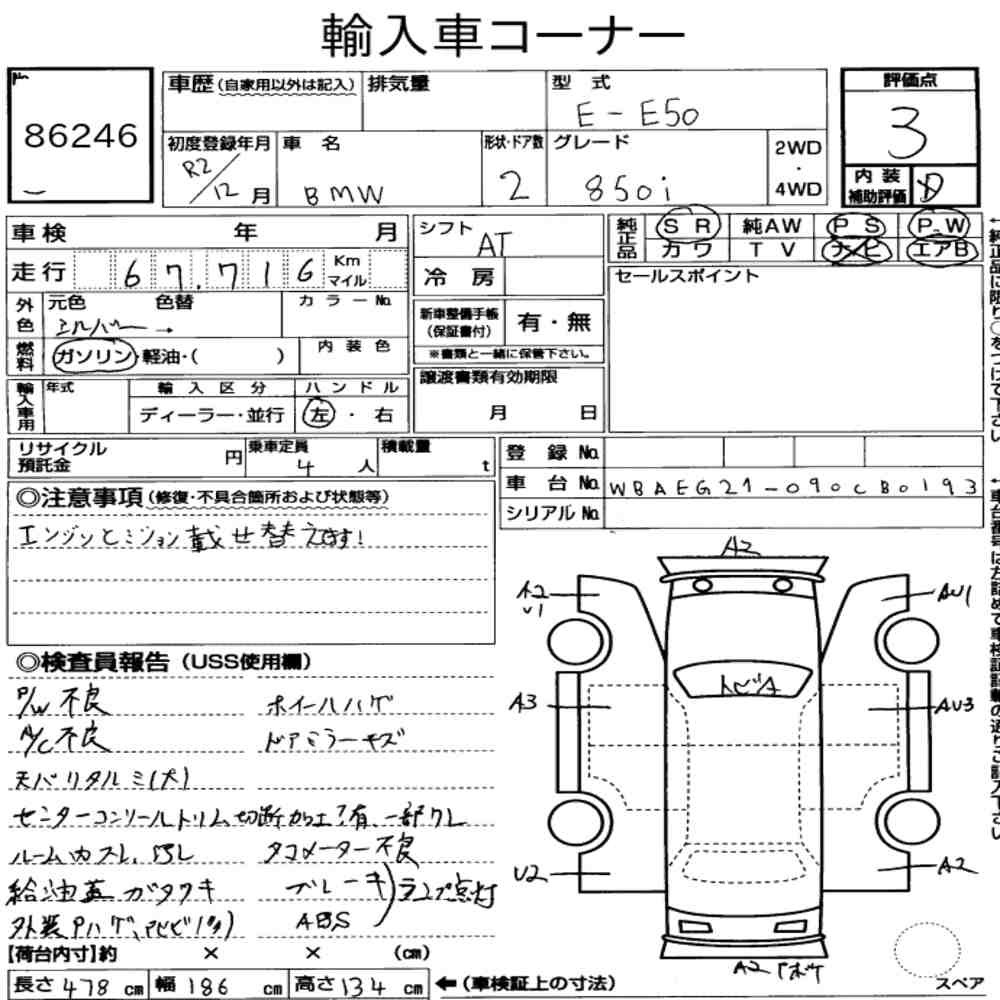 輸入車コーナー
No.
86246
車歴 (自家用以外は記入) 排気量 型式
E-E50
評価点
3
初度登録年月 車名 形状・ドア数 グレード 2WD・4WD
R2/12月 BMW 2 850i
内装補助評価 D
車検 年 月
走行 67,716 Km マイル
外色 元色 色替 カラーNo.
シルバー →
燃料 ガソリン・軽油・( ) 内装色
輸入車用 年式 輸入区分 ハンドル
ディーラー・並行 左・右
シフト AT
冷房
新車整備手帳(保証書付) 有・無
※書類と一緒に保管下さい。
譲渡書類有効期限
月 日
純正品 SR 純AW PS P.W
カワ TV ナビ エアB
セールスポイント
←純正品に限り○をつけて下さい
リサイクル預託金 円 乗車定員 4人 積載量 t
登録No.
車台No. WBAEG21-090CB0193
シリアルNo.
←車台番号は左詰めで車検証記載の通りご記入下さい
◎注意事項 (修復・不具合箇所および状態等)
エンジンとミッション載せ替えます!
◎検査員報告 (USS使用欄)
P/W不良 ホイールハゲ
A/C不良 ドアミラーキズ
天バリタルミ(大)
センターコンソールトリム切断加工有、一部クレ
ルームカスレ、ヨゴレ タコメーター不良
給油蓋ガタツキ ブレーキ ABS ランプ点灯
外装Pハゲ
【荷台内寸】約 × × (cm)
長さ478cm 幅186cm 高さ134cm ←(車検証上の寸法)
A2
A2 U1
AU1
トビA
A3
AU3
U2
A2
A2
スペア